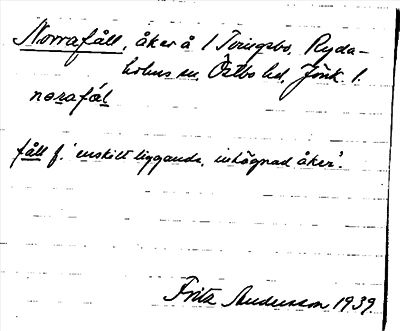 Norrafåll, åker å 1 Toringsbo, Ryda-
holms sn, Östbo hd, Jönk. l.
norafål
fåll f. 'enskilt liggande, inhägnad åker'.
Fritz Andersson 1939